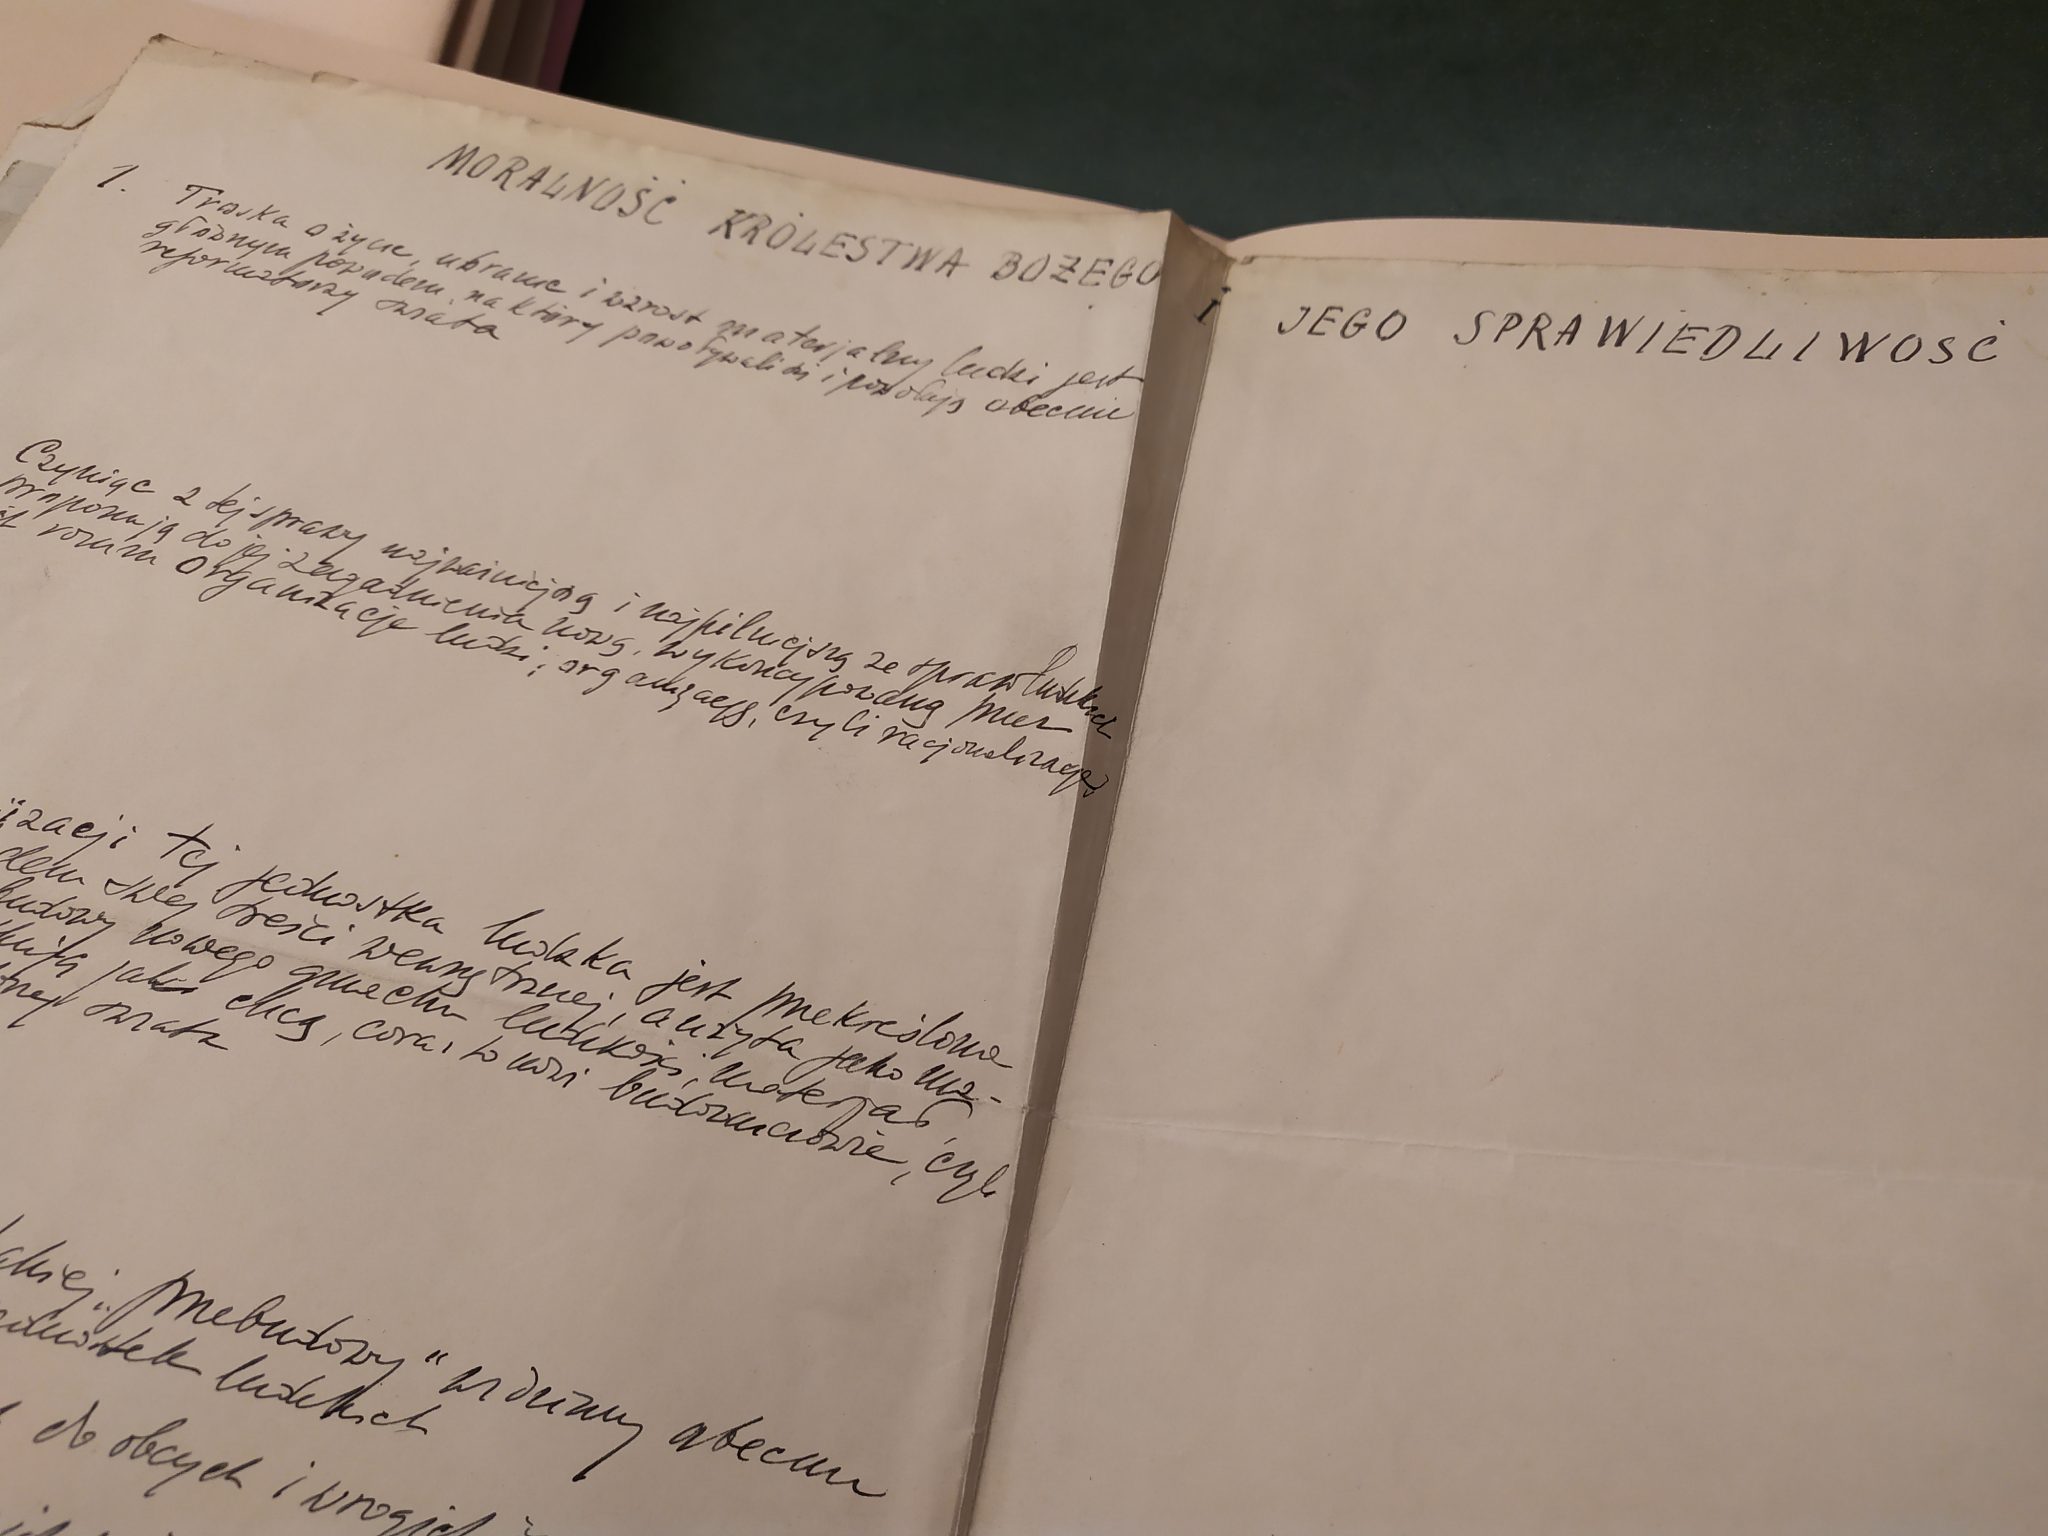 MORALNOŚĆ KRÓLESTWA BOŻEGO I JEGO SPRAWIEDLIWOŚĆ
1. Troska o życie, ubranie i wzrost materjalny ludzi jest
głównym powodem, na który powoływali się i powołują obecnie
reformatorzy świata
Czyniąc z tej sprawy najważniejszą i najpilniejszą ze spraw ludzkich
proponują do jej zagadnienia nową, wykoncypowaną przez
rozum organizację ludzi; organizację, czyli racjonalizację
izacji tej jednostka ludzka jest przekreślona
swej treści wewnętrznej, a użyta jako ma-
budowy nowego gmachu ludzkości, materjał,
jaki chcą, coraz to nowi budowniczowie, czyli
świata
"przebudowy" widzimy obecnie
jednostek ludzkich
do obcych i wrogich